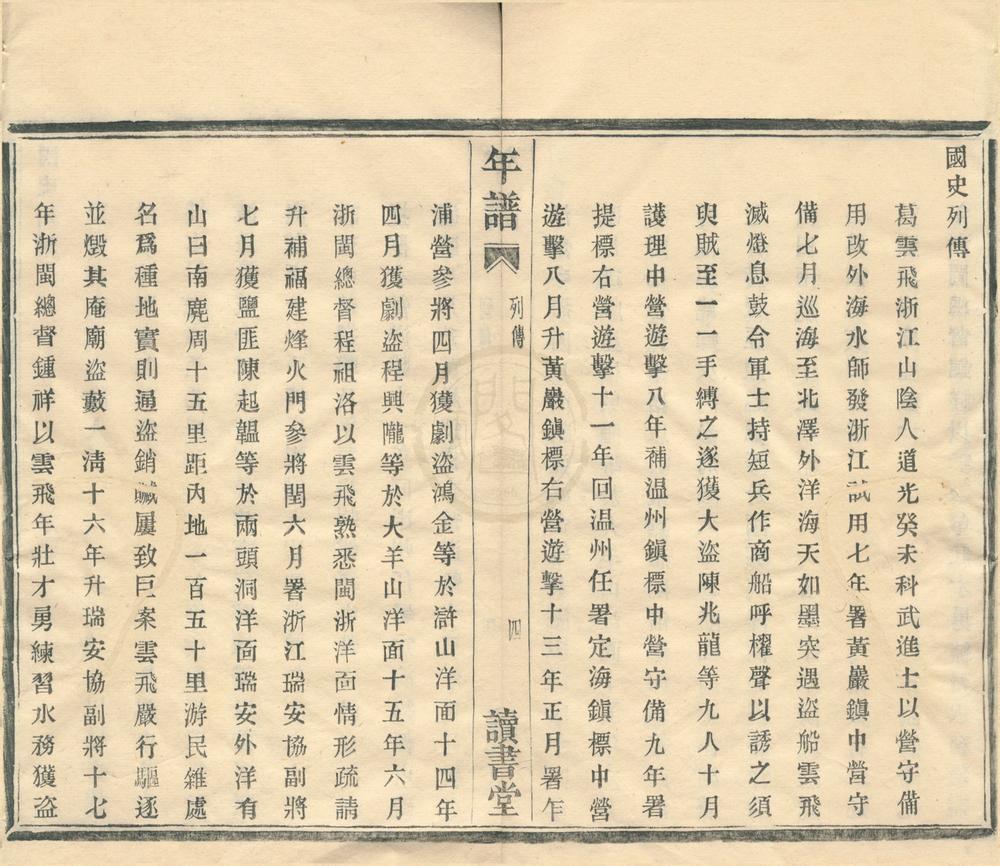 國史列傳
葛雲飛浙江山陰人道光癸未科武進士以營守備
用改外海水師發浙江試用七年署黃巖鎭中營守
備七月巡海至北澤外洋海天如墨突遇盜船雲飛
滅燈息鼓令軍士持短兵作商船呼櫂聲以誘之須
臾賊至一一手縛之逐獲大盜陳兆龍等九人十月
護理中營遊擊八年補溫州鎭標中營守備九年署
提標右營遊擊十一年回溫州任署定海鎭標中營
遊擊八月升黃巖鎭標右營遊擊十三年正月署乍
年譜
列傳
四
讀書堂
浦營參將四月獲劇盜鴻金等於滸山洋面十四年
四月獲劇盜程興隴等於大羊山洋面十五年六月
浙閩總督程祖洛以雲飛熟悉閩浙洋面情形疏請
升補福建烽火門參將閏六月署浙江瑞安協副將
七月獲鹽匪陳起韞等於兩頭洞洋面瑞安外洋有
山曰南麂周十五里距內地一百五十里游民雜處
名爲種地實則通盜銷贓屢致巨案雲飛嚴行驅逐
並燬其庵廟盜藪一淸十六年升瑞安協副將十七
年浙閩總督鍾祥以雲飛年壯才勇練習水務獲盜